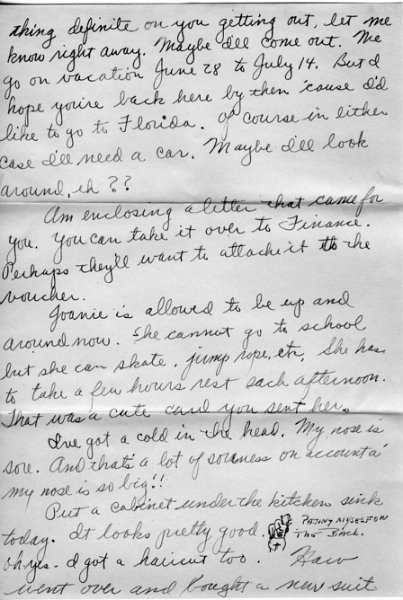 thing definite on you getting out, let me
know right away. Maybe I'll come out. We
go on vacation June 28 to July 14. But I
hope you're back here by then 'cause I'd
like to go to Florida. Of course in either
case I'll need a car. Maybe I'll look
around, eh??
Am enclosing a letter that came for
you. You can take it over to Finance.
Perhaps they'll want to attach it to the
voucher.
Joanie is allowed to be up and
around now. She cannot go to school
but she can skate, jump rope, etc. She has
to take a few hours rest each afternoon.
That was a cute card you sent her.
I've got a cold in the head. My nose is
sore. And that's a lot of soreness on account a'
my nose is so big!!
Put a cabinet under the kitchen sink
today. It looks pretty good. PATTING MYSELF ON
THE BACK.
Oh yes - I got a haircut too.
went over and bought a new suit